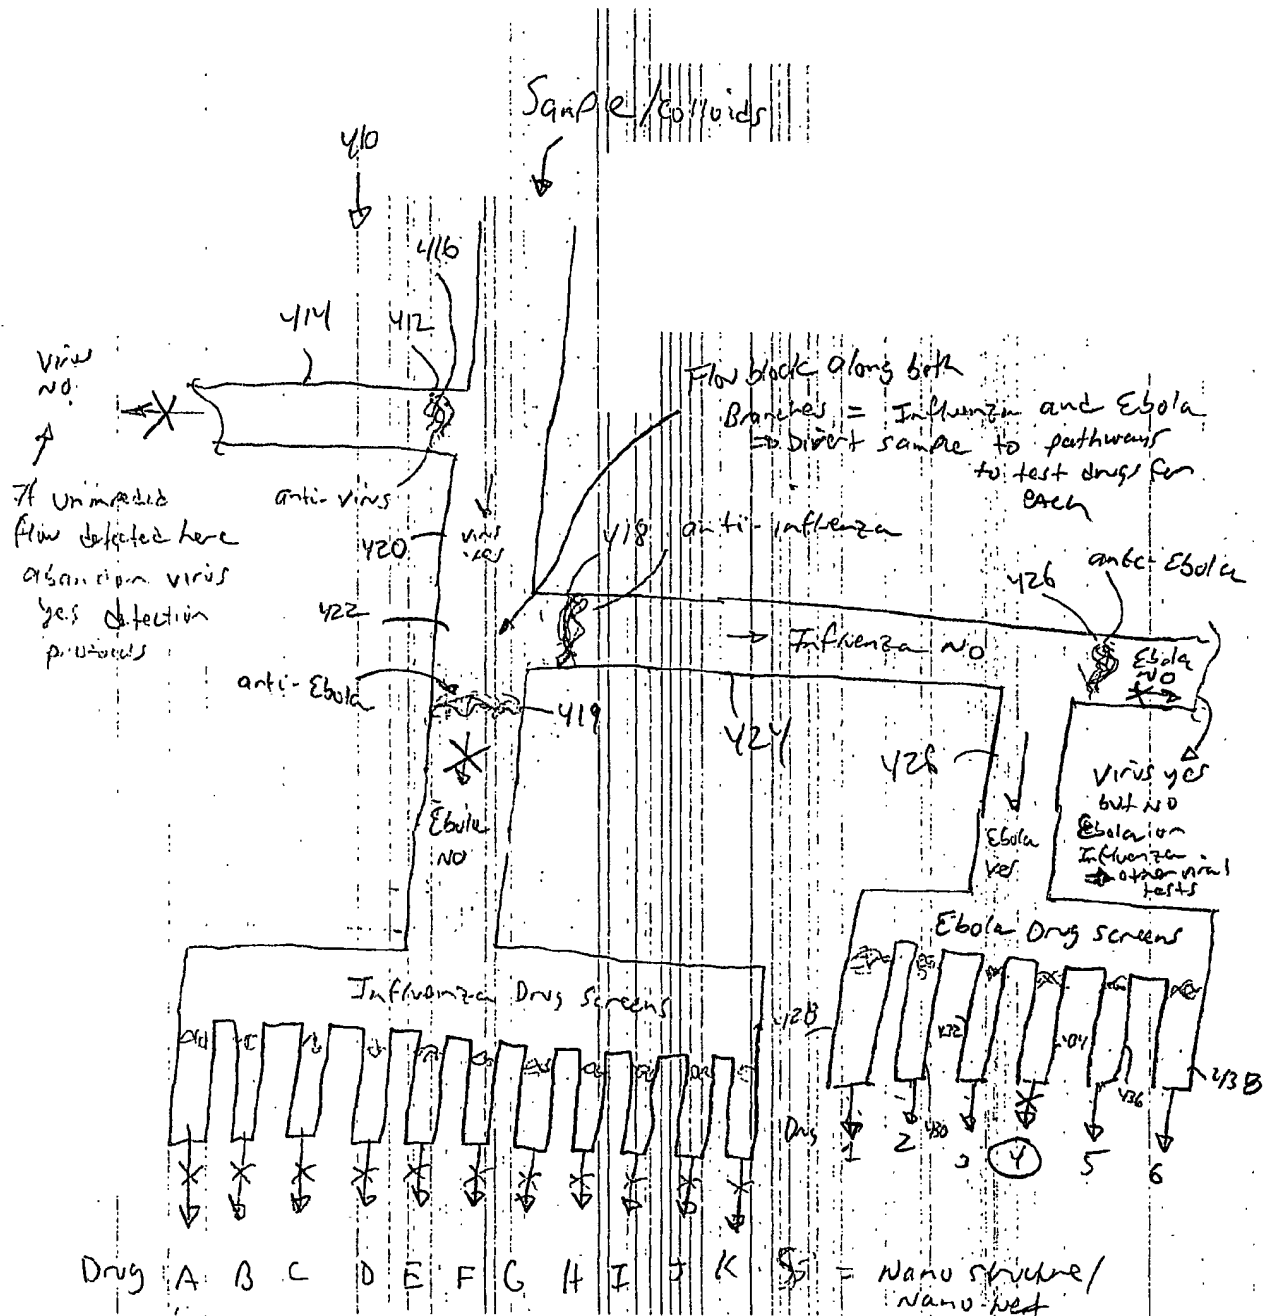 Sample/Colloids
410
416
414
412
Virus
NO.
If unimpeded
flow detected here
abandon virus
yes detection
protocols
anti-virus
420
virus
yes
422
Flow block along both
Branches = Influenza and Ebola
⇒ Divert sample to pathways
to test drugs for
each
418
anti-influenza
426
anti-Ebola
→ Influenza NO
Ebola
NO
anti-Ebola
419
424
Ebola
NO
428
Ebola
yes
Virus yes
but NO
Ebola or
Influenza
⇒ other viral
tests
Influenza Drug Screens
Ebola Drug Screens
428
432
434
436
438
430
Drug 1 2 3 4 5 6
Drug A B C D E F G H I J K
= Nano structure/
Nano-net